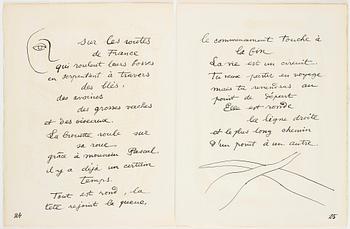 Sur les routes
de France
qui roulent leurs bosses
en serpentant à travers
des blés,
des avoines
des grosses vaches
et des oiseaux.
La brouette roule sur
sa roue
grâce à monsieur Pascal
il y a déjà un certain
temps.
Tout est rond, la
tête rejoint la queue,
24
le commencement touche à
la fin
La vie est un circuit.
Tu veux partir en voyage
mais tu reviendras au
point de départ
Elle est ronde
la ligne droite
et le plus long chemin
d'un point à un autre.
25